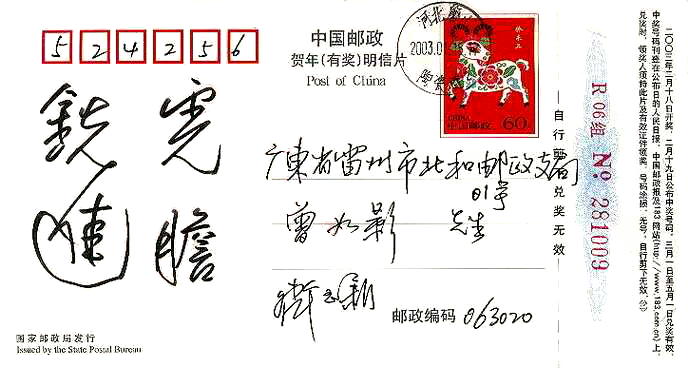 524256
中国邮政
贺年(有奖)明信片
Post of China
河北
2003.0
癸未年
CHINA
中国邮政
60
广东省雷州市北和邮政支局
01号
曾
先生
瞻
邮政编码 063020
国家邮政局发行
Issued by the State Postal Bureau
自行剪下兑奖无效
R 06组 No 281009
二〇〇三年二月十八日开奖,二月十九日公布中奖号码,三月一日至五月一日兑奖有效。
中奖号码刊登在公布日的人民日报、中国邮政报及183网站(http://www.183.com.cn)上。
兑奖时,领奖人须持此片及有效证件领奖,号码涂损、无号、自行剪下无效。